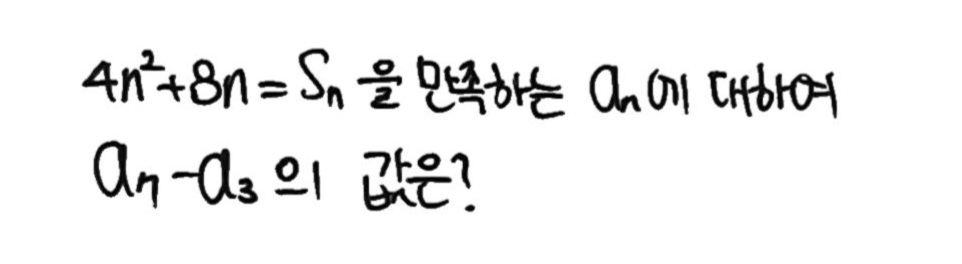 4n²+8n=Sₙ을 만족하는 aₙ에 대하여
a₇-a₃의 값은?